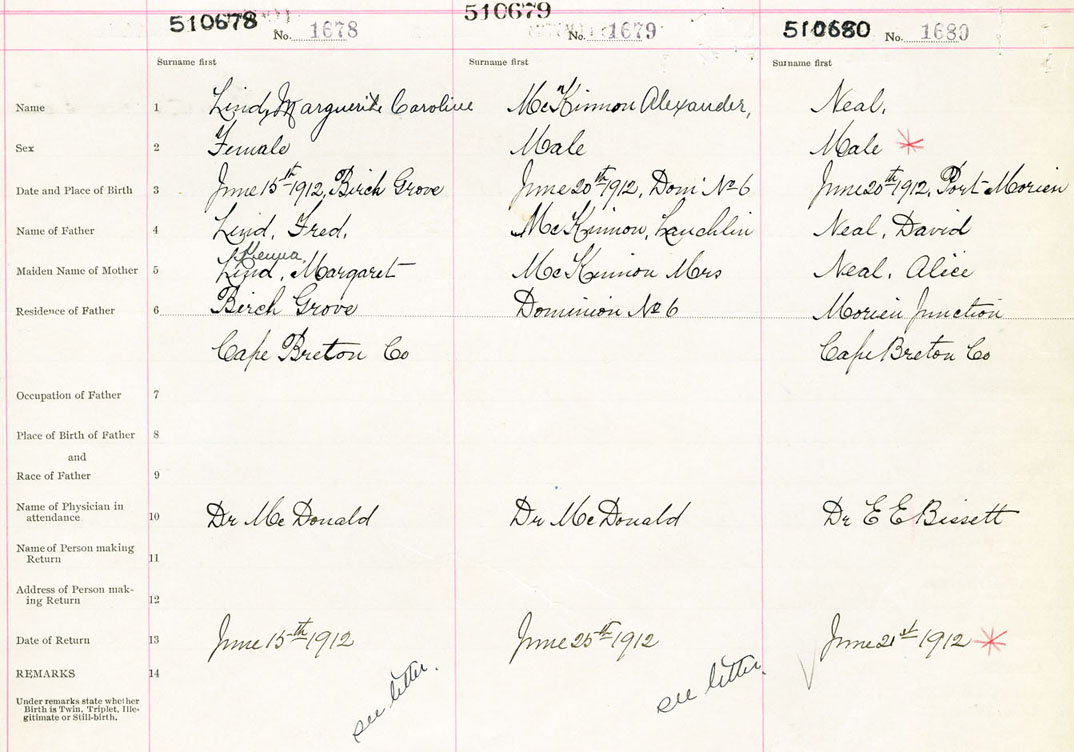 510678 No. 1678 510679 No. 1679 510680 No. 1680
Surname first Surname first Surname first
Name 1 Lind, Marguerite Caroline McKinnon Alexander, Neal,
Sex 2 Female Male Male *
Date and Place of Birth 3 June 15th 1912, Birch Grove June 20th 1912, Dom: No 6 June 20th 1912, Port-Morien
Name of Father 4 Lind, Fred, McKinnon, Lauchlin Neal, David
Maiden Name of Mother 5 Lind, Margaret McKinnon Mrs Neal, Alice
Residence of Father 6 Birch Grove Dominion No 6 Morien Junction
Cape Breton Co Cape Breton Co
Occupation of Father 7
Place of Birth of Father 8
and
Race of Father 9
Name of Physician in
attendance 10 Dr McDonald Dr McDonald Dr E E Bissett
Name of Person making
Return 11
Address of Person mak-
ing Return 12
Date of Return 13 June 15th 1912 June 25th 1912 June 21st 1912 *
REMARKS 14
see letter. see letter.
Under remarks state whether
Birth is Twin, Triplet, Ille-
gitimate or Still-birth.